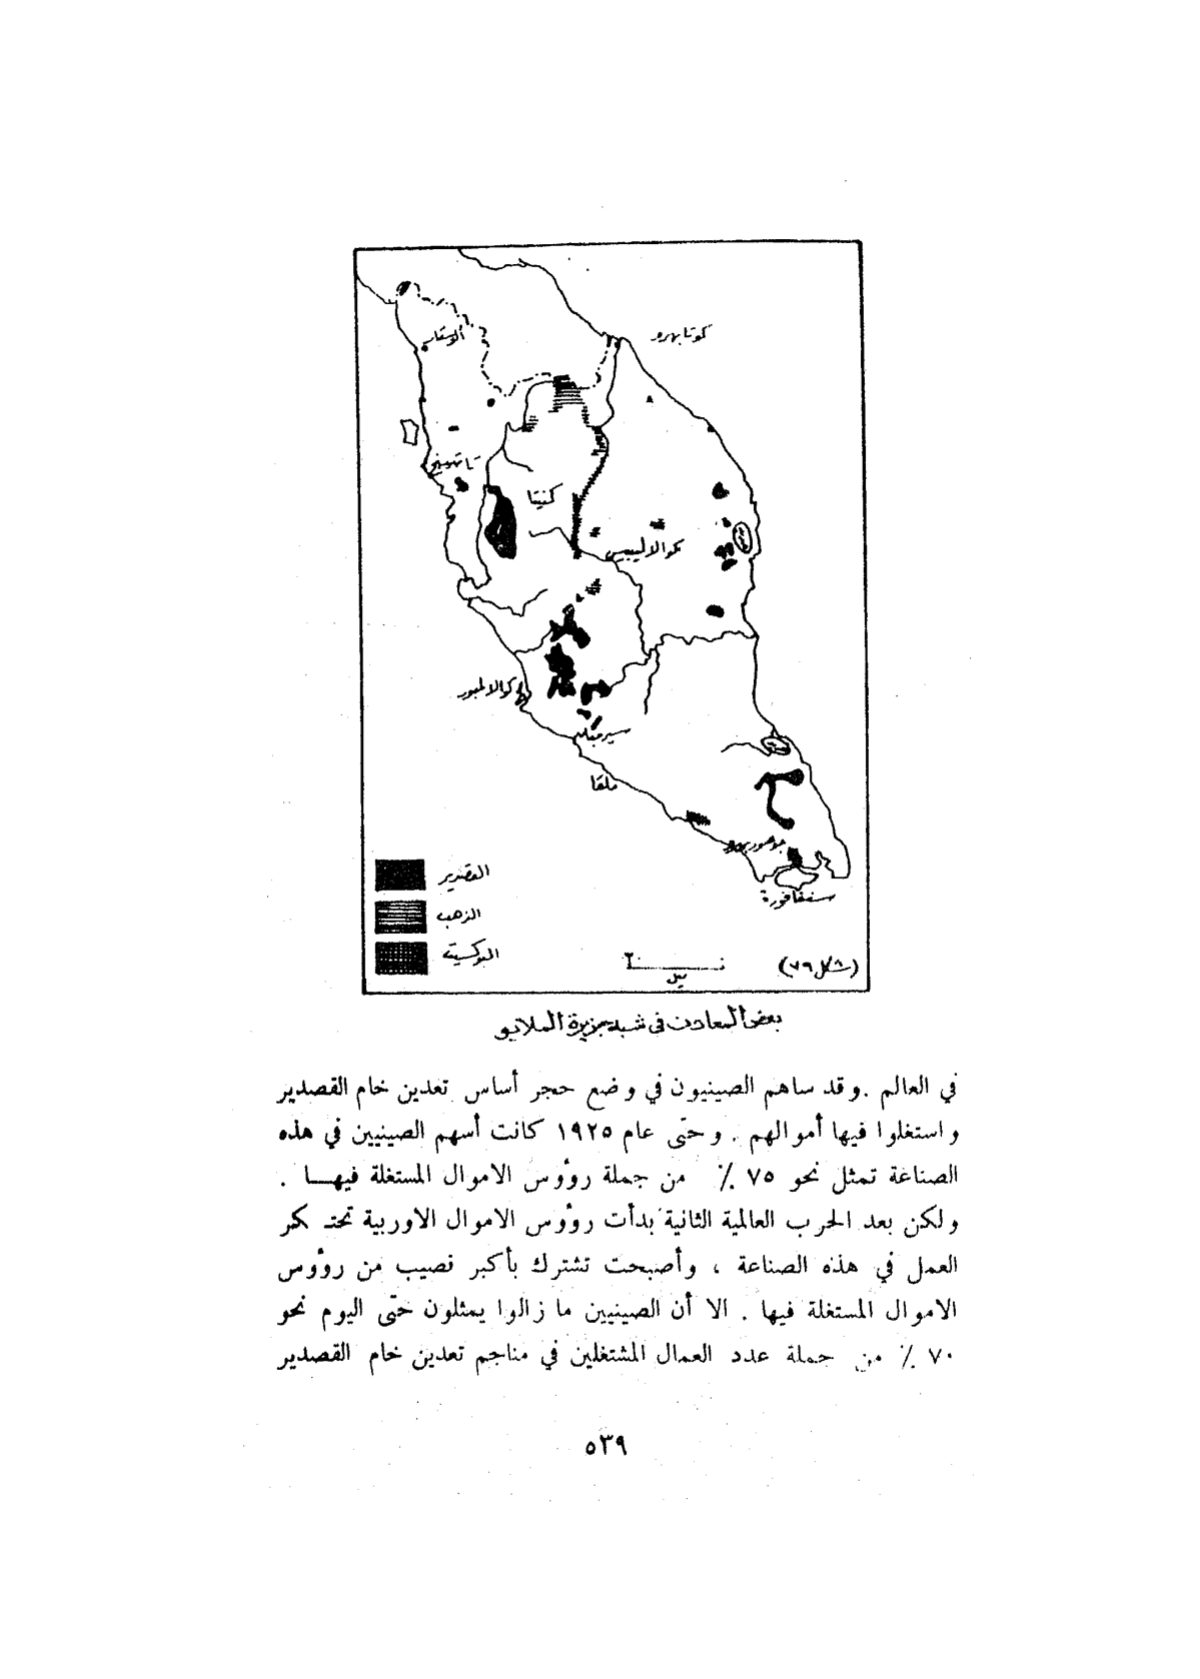 كوتا بهرو
الوستار
تايبنج
كنتا
كوالا ليبيس
كوالا لمبور
سيرمبان
ملقا
جوهور بهارو
سنغافورة
القصدير
الذهب
البوكسيت
ميل
(شكل ٧٩)
بعض المعادن في شبه جزيرة الملايو
في العالم . وقد ساهم الصينيون في وضع حجر أساس تعدين خام القصدير
واستغلوا فيها أموالهم . وحتى عام ١٩٢٥ كانت أسهم الصينيين في هذه
الصناعة تمثل نحو ٧٥ ٪ من جملة رؤوس الاموال المستغلة فيهـــا .
ولكن بعد الحرب العالمية الثانية بدأت رؤوس الاموال الاوربية تحتـكر
العمل في هذه الصناعة ، وأصبحت تشترك بأكبر نصيب من رؤوس
الاموال المستغلة فيها . الا أن الصينيين ما زالوا يمثلون حتى اليوم نحو
٧٠ ٪ من جملة عدد العمال المشتغلين في مناجم تعدين خام القصدير
٥٣٩